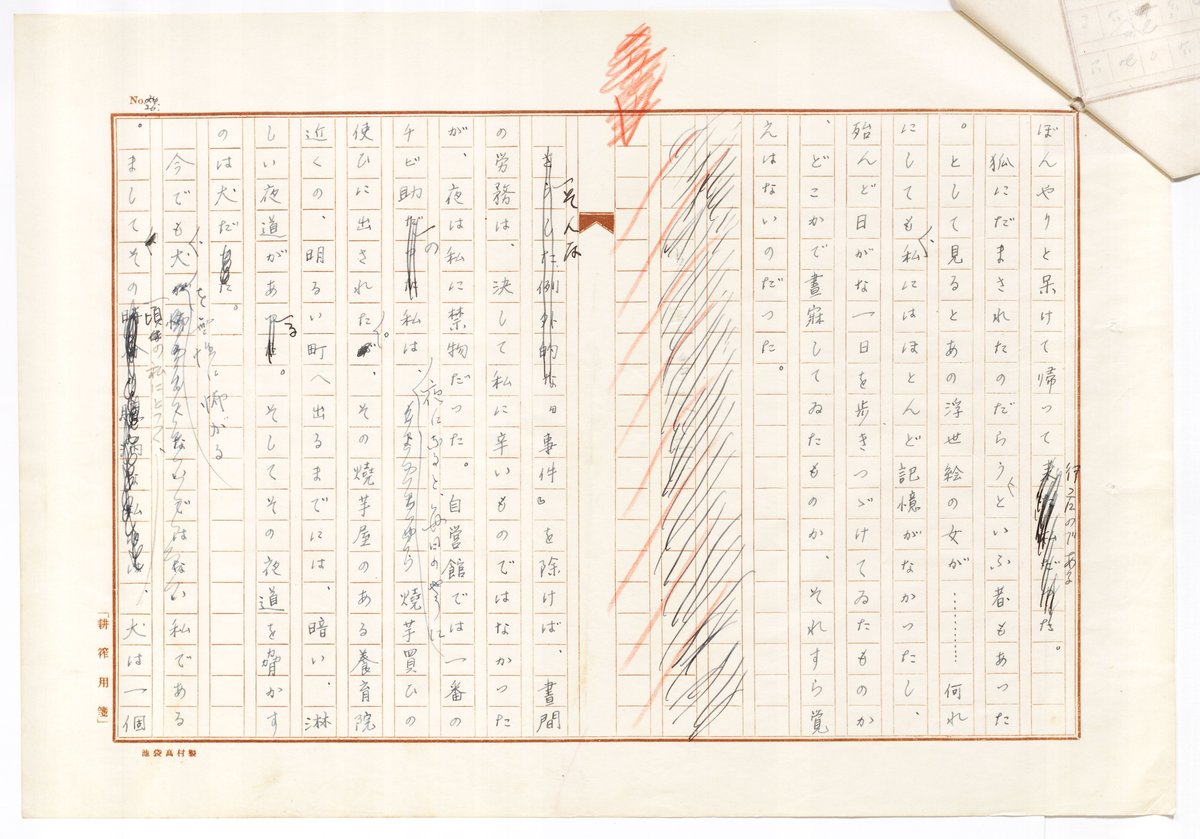 ぼんやりと呆けて帰って行ったのである。
狐にだまされたのだらうといふ者もあった
。として見るとあの浮世絵の女が………何れ
にしても、私にはほとんど記憶がなかったし、
殆んど日がな一日を歩きつゞけてゐたものか
、どこかで晝寐してゐたものか、それすら覚
えはないのだった。
そんな事件を除けば、晝間
の労務は、決して私に辛いものではなかった
が、夜は私に禁物だった。自営館では一番の
チビ助の私は、夜になると、毎日のやうに燒芋買ひの
使ひに出された。その燒芋屋のある養育院
近くの、明るい町へ出るまでには、暗い、淋
しい夜道がある。そしてその夜道を脅かす
のは犬だ。
今でも、犬を怖がる私である
。ましてその頃の私にとつて、犬は一個
No. 26.
「耕窄用箋」
池袋髙村製